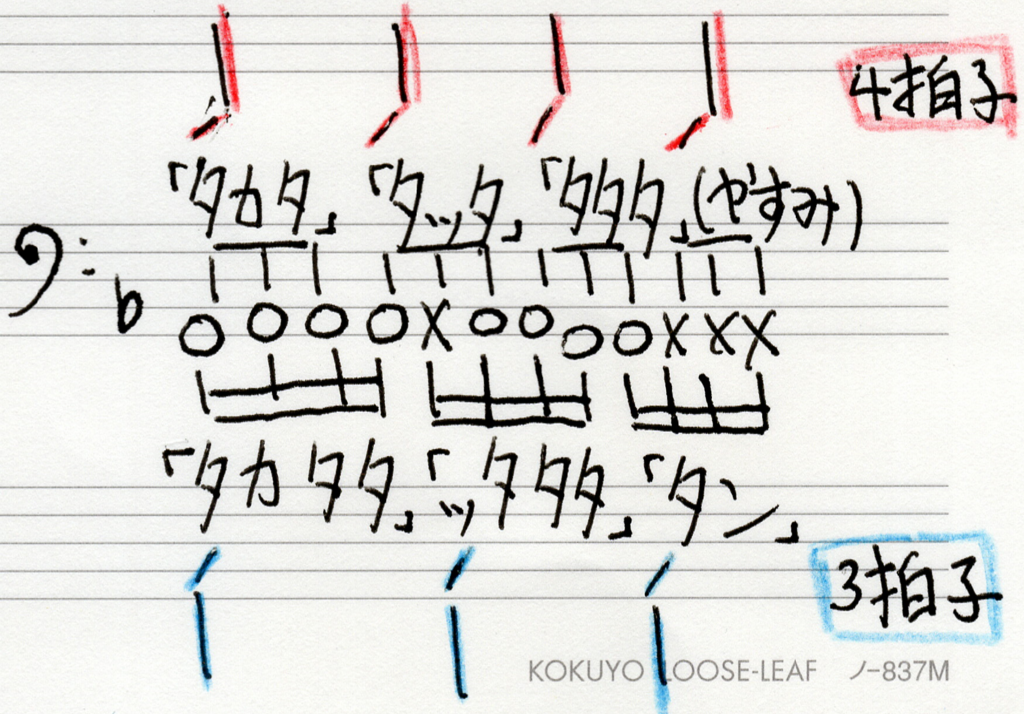 4拍子
「タカタ」「タッタ」「タタタ」(やすみ)
「タカタタ」「ッタタタ」「タン」
3拍子
KOKUYO LOOSE-LEAF ノ-837M